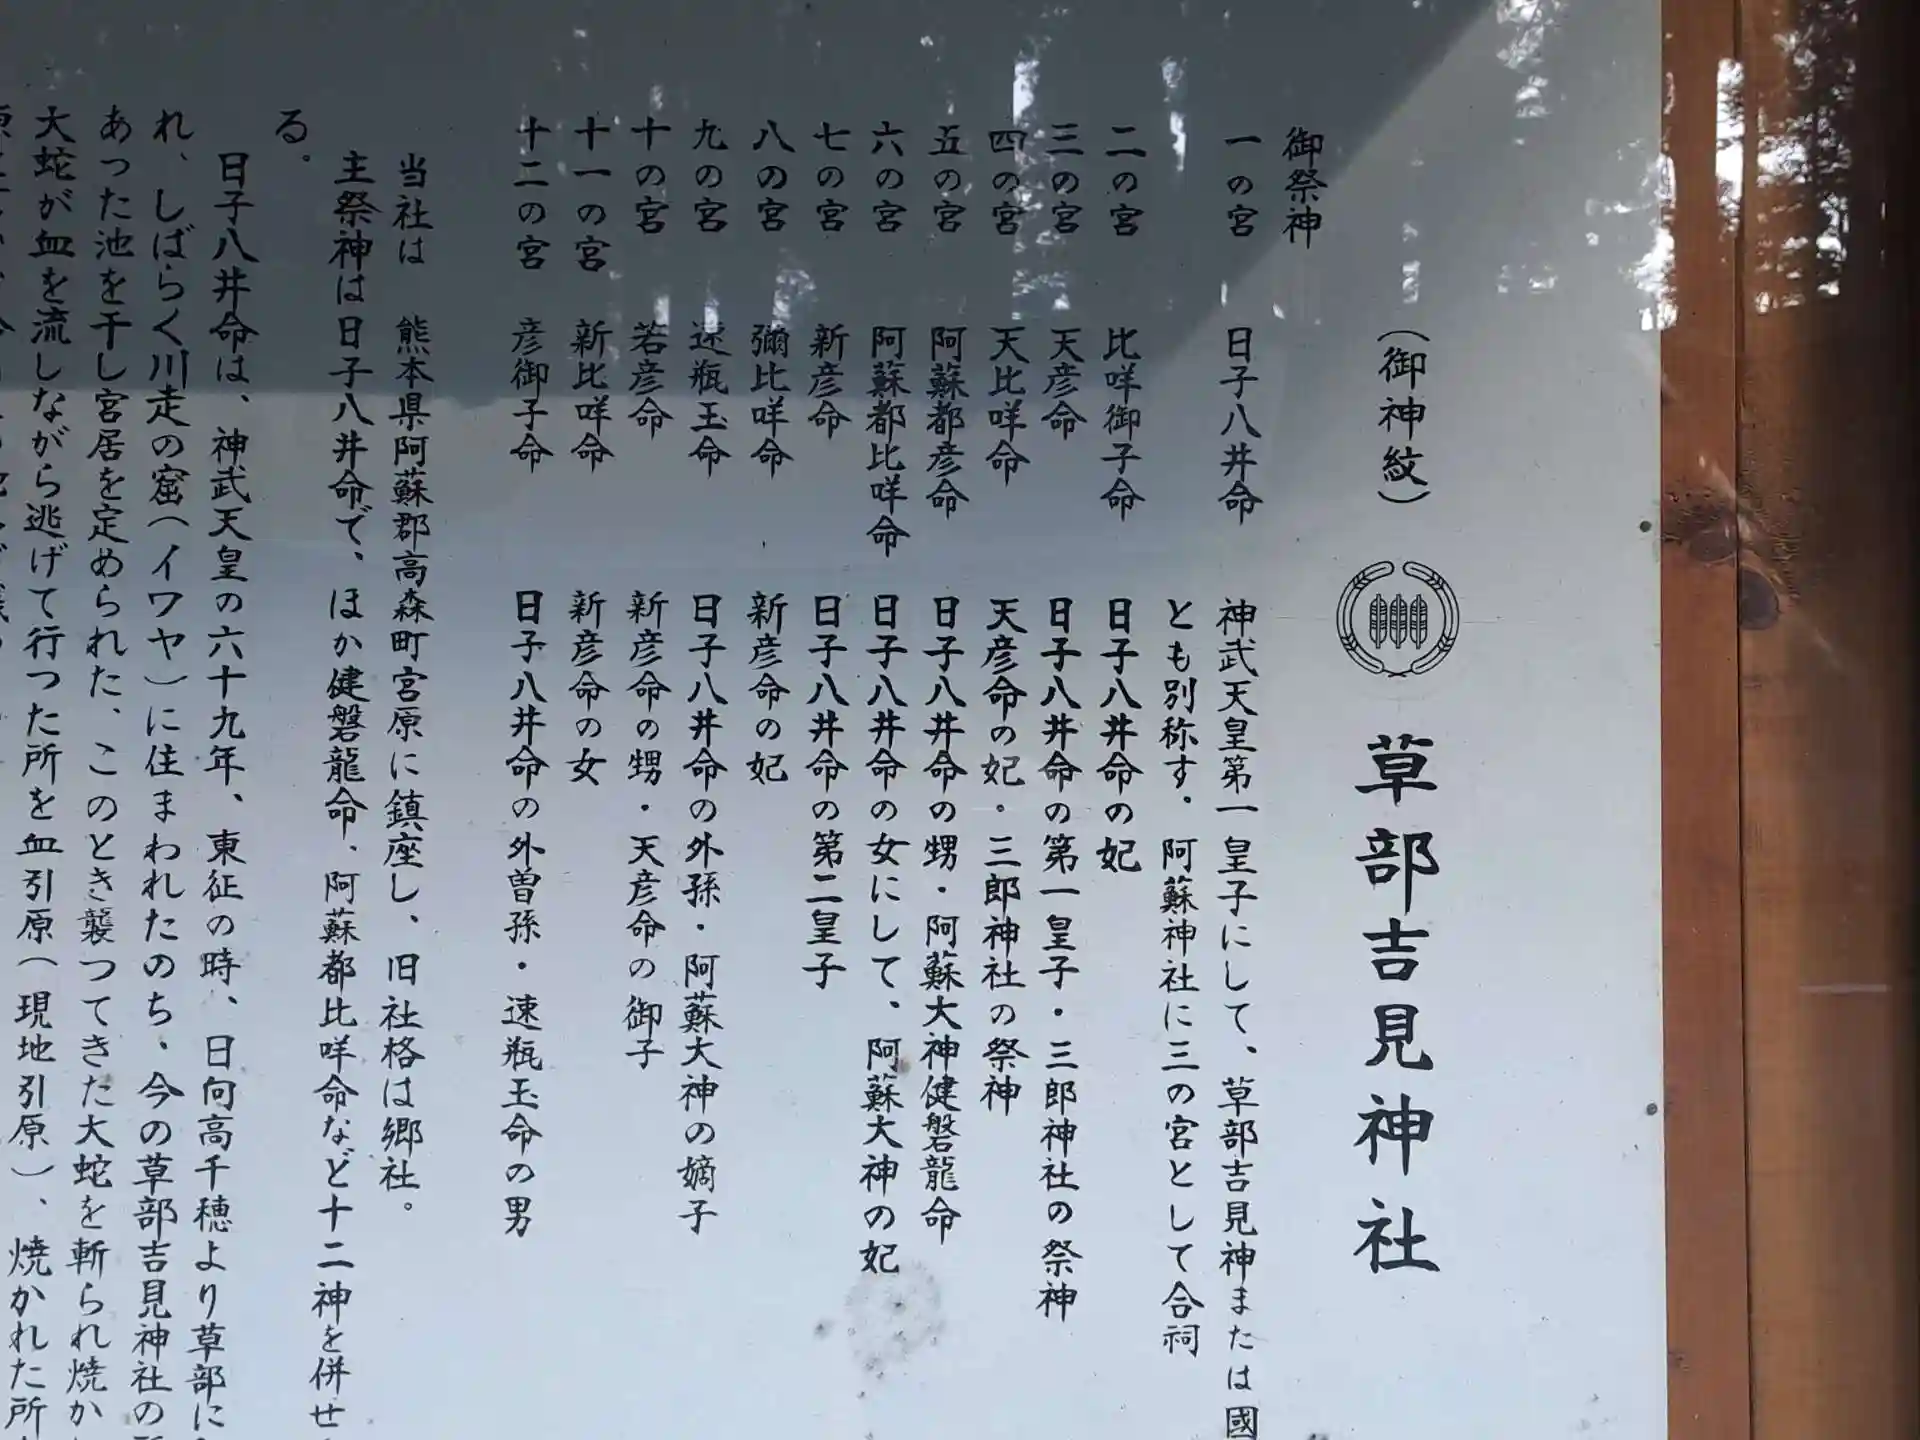 （御神紋） 草部吉見神社
御祭神
一の宮 日子八井命 神武天皇第一皇子にして、草部吉見神または國
とも別称す．阿蘇神社に三の宮として合祠
二の宮 比咩御子命 日子八井命の妃
三の宮 天彦命 日子八井命の第一皇子・三郎神社の祭神
四の宮 天比咩命 天彦命の妃・三郎神社の祭神
五の宮 阿蘇都彦命 日子八井命の甥・阿蘇大神健磐龍命
六の宮 阿蘇都比咩命 日子八井命の女にして、阿蘇大神の妃
七の宮 新彦命 日子八井命の第二皇子
八の宮 彌比咩命 新彦命の妃
九の宮 速瓶玉命 日子八井命の外孫・阿蘇大神の嫡子
十の宮 若彦命 新彦命の甥・天彦命の御子
十一の宮 新比咩命 新彦命の女
十二の宮 彦御子命 日子八井命の外曽孫・速瓶玉命の男
当社は 熊本県阿蘇郡高森町宮原に鎮座し、旧社格は郷社。
主祭神は日子八井命で、ほか健磐龍命、阿蘇都比咩命など十二神を併せ
る．
日子八井命は、神武天皇の六十九年、東征の時、日向高千穂より草部に
れ、しばらく川走の窟（イワヤ）に住まわれたのち、今の草部吉見神社の
あった池を干し宮居を定められた、このとき襲つてきた大蛇を斬られ焼か
大蛇が血を流しながら逃げて行つた所を血引原（現地引原）、焼かれた所